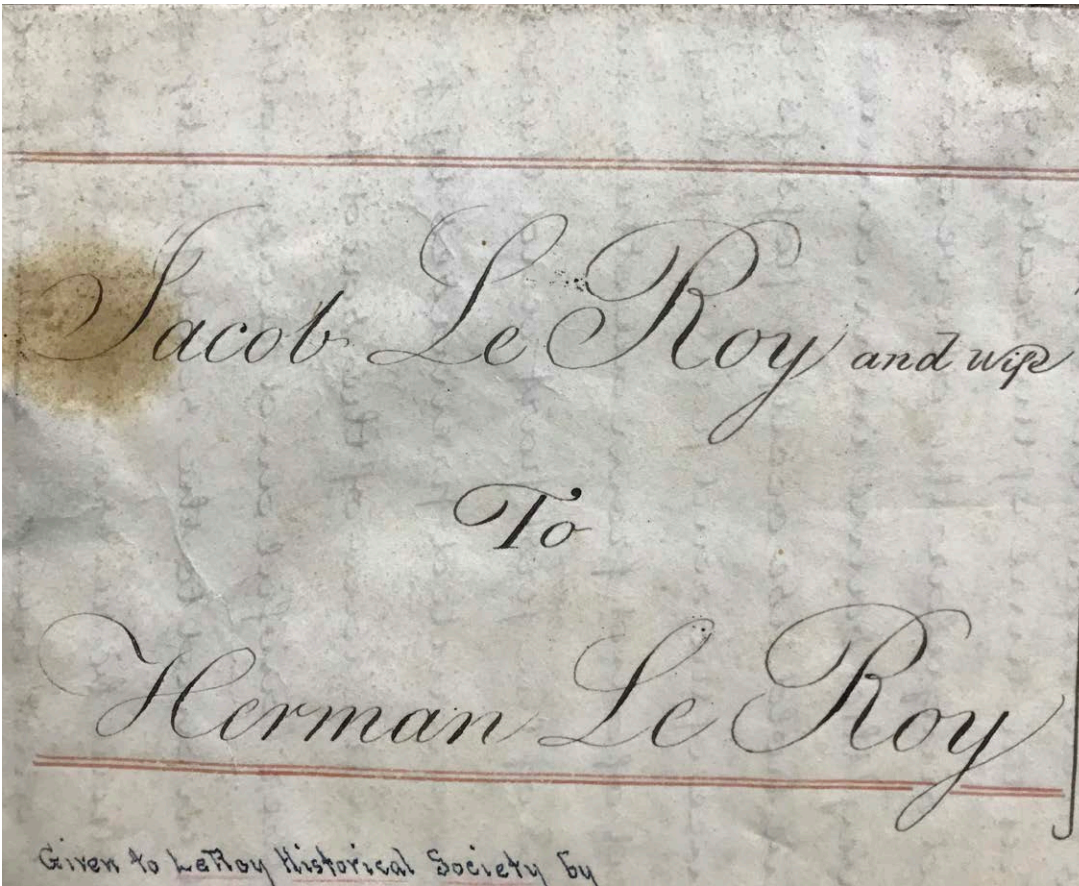 Jacob Le Roy and wife
To
Herman Le Roy
Given to LeRoy Historical Society by